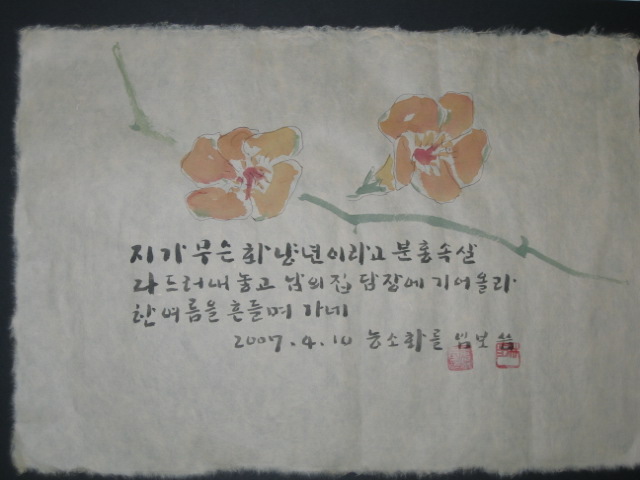 지가 무슨 화냥년이라고 분홍속살
다 드러내 놓고 남의 집 담장에 기어올라
한 여름을 흔들며 가네
2007.4.10 능소화를 임보 씀